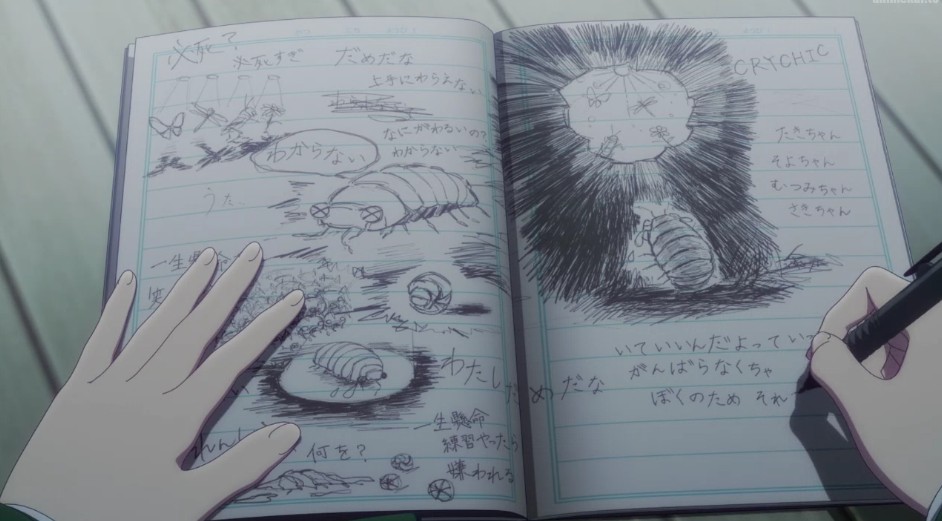 必死すぎ
だめだな
上手にわらえない
なにがわるいの?
わからない
わからない
うた
一生懸命
わたしだめだな
何を?
一生懸命
練習やったら
嫌われる
CRYCHIC
たきちゃん
そよちゃん
むつみちゃん
さきちゃん
いていいんだよってい
がんばらなくちゃ
ぼくのため それ